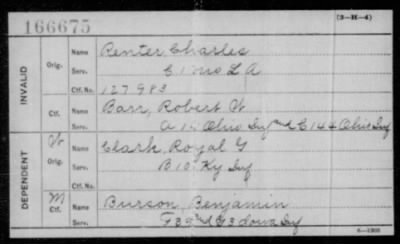 166675
(3-H-4)
INVALID
Orig.
Name Renter, Charles
Serv. C 1 Mo L A
Ctf. No. 127983
Ctf.
Name Barr, Robert W
Serv. A 1" Ohio Inf and C 144 Ohio Inf
DEPENDENT
W
Orig.
Name Clark, Royal G
Serv. B 10" Ky Inf
Ctf. No.
M
Ctf.
Name Burson Benjamin
Serv. F 39" & G 3 Iowa Inf